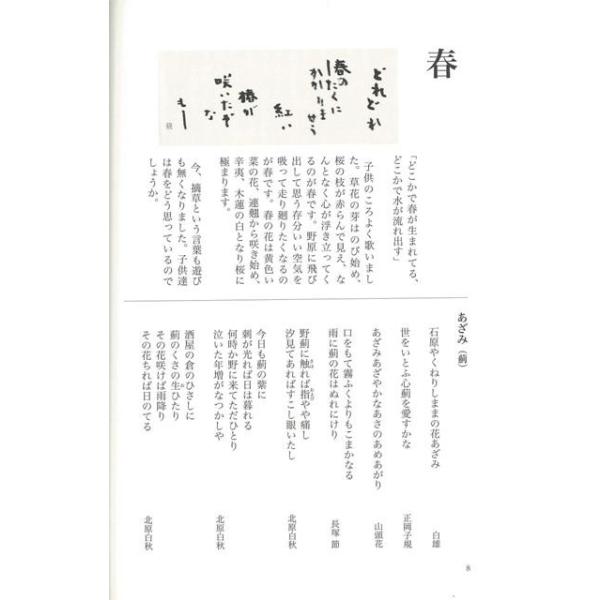 春
どれどれ
春の
したくに
かかりませう
紅い
椿が
咲いたぞ
な
もし
「どこかで春が生まれてる、
どこかで水が流れ出す」
子供のころよく歌いまし
た。草花の芽はのび始め、
桜の枝が赤らんで見え、な
んとなく心が浮き立ってく
るのが春です。野原に飛び
出して思う存分いい空気を
吸って走り廻りたくなるの
が春です。春の花は黄色い
菜の花、連翹から咲き始め、
辛夷、木蓮の白となり桜に
極まります。
今、摘草という言葉も遊び
も無くなりました。子供達
は春をどう思っているので
しょうか。
あざみ(薊)
石原やくねりしままの花あざみ 白雄
世をいとふ心薊を愛すかな 正岡子規
あざみあざやかなあさのあめあがり 山頭花
口をもて霧ふくよりもこまかなる
雨に薊の花はぬれにけり 長塚 節
野薊に触れば指やや痛し
汐見てあればすこし眼いたし 北原白秋
今日も薊の紫に
刺が光れば日は暮れる
何時か野に来てただひとり
泣いた年増がなつかしや 北原白秋
酒屋の倉のひさしに
薊のくさの生ひたり
その花咲けば雨降り
その花ちれば日のてる 北原白秋
8